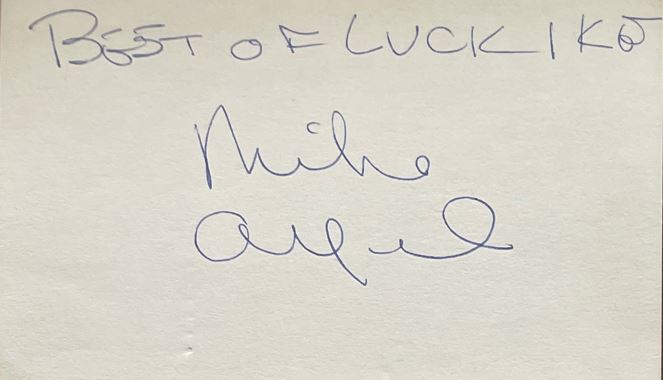 BEST OF LUCK IKE
Mike